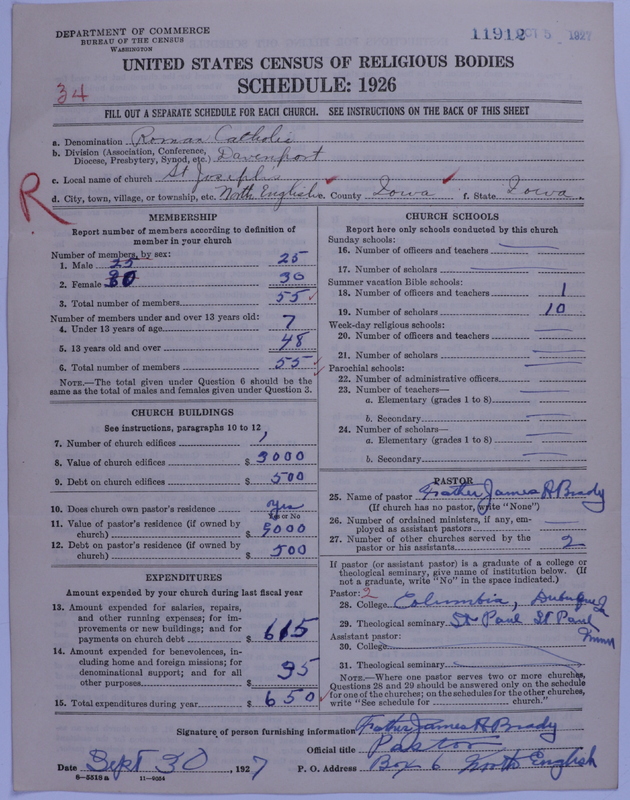 DEPARTMENT OF COMMERCE
BUREAU OF THE CENSUS
WASHINGTON
11912 OCT 5 1927
UNITED STATES CENSUS OF RELIGIOUS BODIES
SCHEDULE: 1926
34
FILL OUT A SEPARATE SCHEDULE FOR EACH CHURCH. SEE INSTRUCTIONS ON THE BACK OF THIS SHEET
a. Denomination Roman Catholic
b. Division (Association, Conference, Diocese, Presbytery, Synod, etc.) Davenport
c. Local name of church St Josephs
R
d. City, town, village, or township, etc. North English e. County Iowa f. State Iowa
MEMBERSHIP
Report number of members according to definition of
member in your church
Number of members, by sex:
1. Male 25 25
2. Female 30 30
3. Total number of members 55
Number of members under and over 13 years old:
4. Under 13 years of age 7
5. 13 years old and over 48
6. Total number of members 55
NOTE.—The total given under Question 6 should be the
same as the total of males and females given under Question 3.
CHURCH BUILDINGS
See instructions, paragraphs 10 to 12
7. Number of church edifices 1
8. Value of church edifices $ 3000
9. Debt on church edifices $ 500
10. Does church own pastor's residence Yes
Yes or No
11. Value of pastor's residence (if owned by
church) $ 5000
12. Debt on pastor's residence (if owned by
church) $ 500
EXPENDITURES
Amount expended by your church during last fiscal year
13. Amount expended for salaries, repairs,
and other running expenses; for im-
provements or new buildings; and for
payments on church debt $ 615
14. Amount expended for benevolences, in-
cluding home and foreign missions; for
denominational support; and for all
other purposes $ 35
15. Total expenditures during year $ 650
CHURCH SCHOOLS
Report here only schools conducted by this church
Sunday schools:
16. Number of officers and teachers
17. Number of scholars
Summer vacation Bible schools:
18. Number of officers and teachers 1
19. Number of scholars 10
Week-day religious schools:
20. Number of officers and teachers
21. Number of scholars
Parochial schools:
22. Number of administrative officers
23. Number of teachers—
a. Elementary (grades 1 to 8)
b. Secondary
24. Number of scholars—
a. Elementary (grades 1 to 8)
b. Secondary
PASTOR
25. Name of pastor Father James A Brady
(If church has no pastor, write "None")
26. Number of ordained ministers, if any, em-
ployed as assistant pastors
27. Number of other churches served by the
pastor or his assistants 2
If pastor (or assistant pastor) is a graduate of a college or
theological seminary, give name of institution below. (If
not a graduate, write "No" in the space indicated.)
Pastor: 2
28. College Columbia, Dubuque Ia
29. Theological seminary St Paul St Paul
Minn
Assistant pastor:
30. College
31. Theological seminary
NOTE.—Where one pastor serves two or more churches,
Questions 28 and 29 should be answered only on the schedule
for one of the churches; on the schedules for the other churches,
write "See schedule for church."
Signature of person furnishing information Father James A Brady
Official title Pastor
Date Sept 30, 1927 P. O. Address Box 6 North English
6—5519a 11—9034